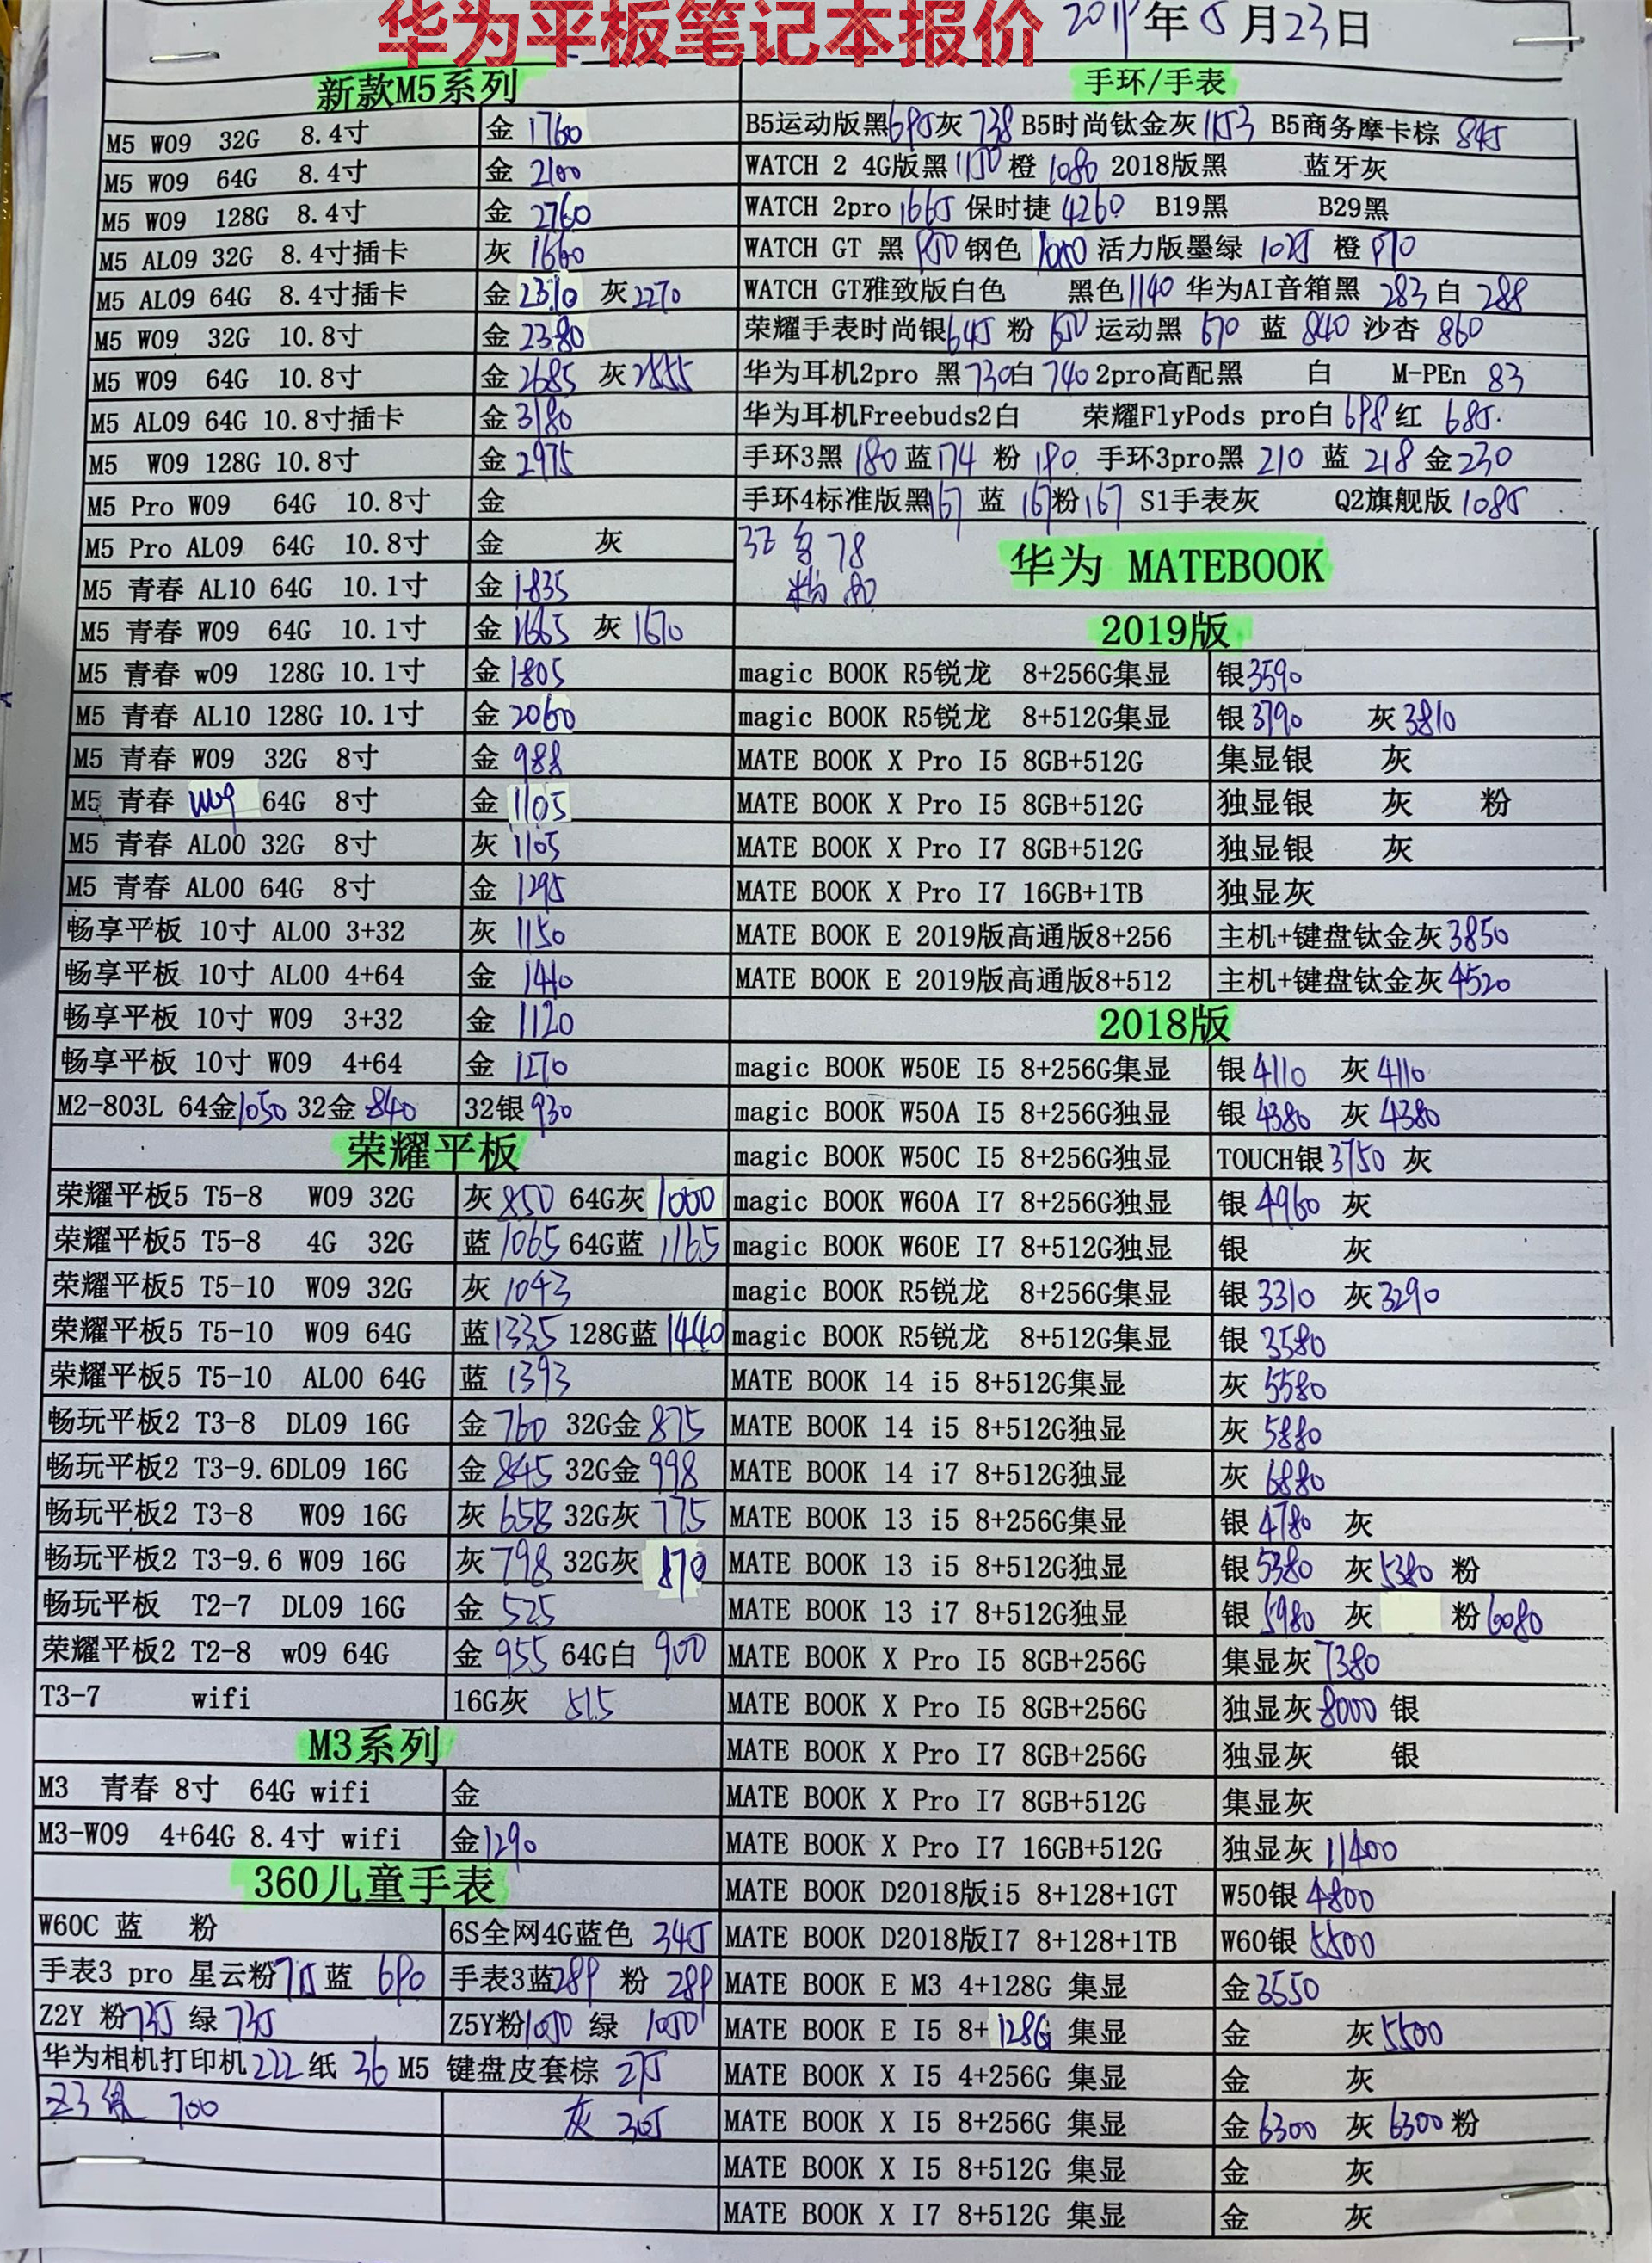 华为平板笔记本报价
2019年5月23日
新款M5系列
M5 W09 32G 8.4寸 金 1760
M5 W09 64G 8.4寸 金 2100
M5 W09 128G 8.4寸 金 2760
M5 AL09 32G 8.4寸插卡 灰 1660
M5 AL09 64G 8.4寸插卡 金 2310 灰 2270
M5 W09 32G 10.8寸 金 2380
M5 W09 64G 10.8寸 金 2685 灰
M5 AL09 64G 10.8寸插卡 金 3180
M5 W09 128G 10.8寸 金 2975
M5 Pro W09 64G 10.8寸 金
M5 Pro AL09 64G 10.8寸 金 灰
M5 青春 AL10 64G 10.1寸 金 1835
M5 青春 W09 64G 10.1寸 金 1665 灰 1670
M5 青春 w09 128G 10.1寸 金 1805
M5 青春 AL10 128G 10.1寸 金 2060
M5 青春 W09 32G 8寸 金 988
M5 青春 W09 64G 8寸 金 1105
M5 青春 AL00 32G 8寸 灰 1105
M5 青春 AL00 64G 8寸 金 1295
畅享平板 10寸 AL00 3+32 灰 1150
畅享平板 10寸 AL00 4+64 金 1440
畅享平板 10寸 W09 3+32 金 1120
畅享平板 10寸 W09 4+64 金 1270
M2-803L 64金 1050 32金 840 32银 930
荣耀平板
荣耀平板5 T5-8 W09 32G 灰 850 64G灰 1000
荣耀平板5 T5-8 4G 32G 蓝 1065 64G蓝 1165
荣耀平板5 T5-10 W09 32G 灰 1043
荣耀平板5 T5-10 W09 64G 蓝 1335 128G蓝 1440
荣耀平板5 T5-10 AL00 64G 蓝 1393
畅玩平板2 T3-8 DL09 16G 金 760 32G金 875
畅玩平板2 T3-9.6DL09 16G 金 845 32G金 998
畅玩平板2 T3-8 W09 16G 灰 658 32G灰 775
畅玩平板2 T3-9.6 W09 16G 灰 798 32G灰 870
畅玩平板 T2-7 DL09 16G 金 525
荣耀平板2 T2-8 w09 64G 金 955 64G白 900
T3-7 wifi 16G灰 515
M3系列
M3 青春 8寸 64G wifi 金
M3-W09 4+64G 8.4寸 wifi 金 1290
360儿童手表
W60C 蓝 粉 6S全网4G蓝色 345
手表3 pro 星云粉 715 蓝 690 手表3蓝 289 粉 289
Z2Y 粉 735 绿 735 Z5Y粉 1050 绿 1050
华为相机打印机 222 纸 36 M5 键盘皮套棕 275
Z3 银 700 灰 305
手环/手表
B5运动版黑 695 灰 738 B5时尚钛金灰 1153 B5商务摩卡棕 845
WATCH 2 4G版黑 1150 橙 1080 2018版黑 蓝牙灰
WATCH 2pro 1665 保时捷 4260 B19黑 B29黑
WATCH GT 黑 950 钢色 1050 活力版墨绿 1025 橙 970
WATCH GT雅致版白色 黑色 1140 华为AI音箱黑 283 白 288
荣耀手表时尚银 645 粉 650 运动黑 670 蓝 840 沙杏 860
华为耳机2pro 黑 730 白 740 2pro高配黑 白 M-PEn 83
华为耳机Freebuds2白 荣耀FlyPods pro白 698 红 685.
手环3黑 180 蓝 174 粉 190 手环3pro黑 210 蓝 218 金 230
手环4标准版黑 167 蓝 167 粉 167 S1手表灰 Q2旗舰版 1085
78
粉 80
华为 MATEBOOK
2019版
magic BOOK R5锐龙 8+256G集显 银 3590
magic BOOK R5锐龙 8+512G集显 银 3790 灰 3810
MATE BOOK X Pro I5 8GB+512G 集显银 灰
MATE BOOK X Pro I5 8GB+512G 独显银 灰 粉
MATE BOOK X Pro I7 8GB+512G 独显银 灰
MATE BOOK X Pro I7 16GB+1TB 独显灰
MATE BOOK E 2019版高通版8+256 主机+键盘钛金灰 3850
MATE BOOK E 2019版高通版8+512 主机+键盘钛金灰 4520
2018版
magic BOOK W50E I5 8+256G集显 银 4110 灰 4110
magic BOOK W50A I5 8+256G独显 银 4380 灰 4380
magic BOOK W50C I5 8+256G独显 TOUCH银 3750 灰
magic BOOK W60A I7 8+256G独显 银 4960 灰
magic BOOK W60E I7 8+512G独显 银 灰
magic BOOK R5锐龙 8+256G集显 银 3310 灰 3290
magic BOOK R5锐龙 8+512G集显 银 3580
MATE BOOK 14 i5 8+512G集显 灰 5580
MATE BOOK 14 i5 8+512G独显 灰 5880
MATE BOOK 14 i7 8+512G独显 灰 6880
MATE BOOK 13 i5 8+256G集显 银 4780 灰
MATE BOOK 13 i5 8+512G独显 银 5380 灰 5380 粉
MATE BOOK 13 i7 8+512G独显 银 5980 灰 粉 6080
MATE BOOK X Pro I5 8GB+256G 集显灰 7380
MATE BOOK X Pro I5 8GB+256G 独显灰 8000 银
MATE BOOK X Pro I7 8GB+256G 独显灰 银
MATE BOOK X Pro I7 8GB+512G 集显灰
MATE BOOK X Pro I7 16GB+512G 独显灰 11400
MATE BOOK D2018版i5 8+128+1GT W50银 4800
MATE BOOK D2018版I7 8+128+1TB W60银 5500
MATE BOOK E M3 4+128G 集显 金 3550
MATE BOOK E I5 8+128G 集显 金 灰 5500
MATE BOOK X I5 4+256G 集显 金 灰
MATE BOOK X I5 8+256G 集显 金 6300 灰 6300 粉
MATE BOOK X I5 8+512G 集显 金 灰
MATE BOOK X I7 8+512G 集显 金 灰